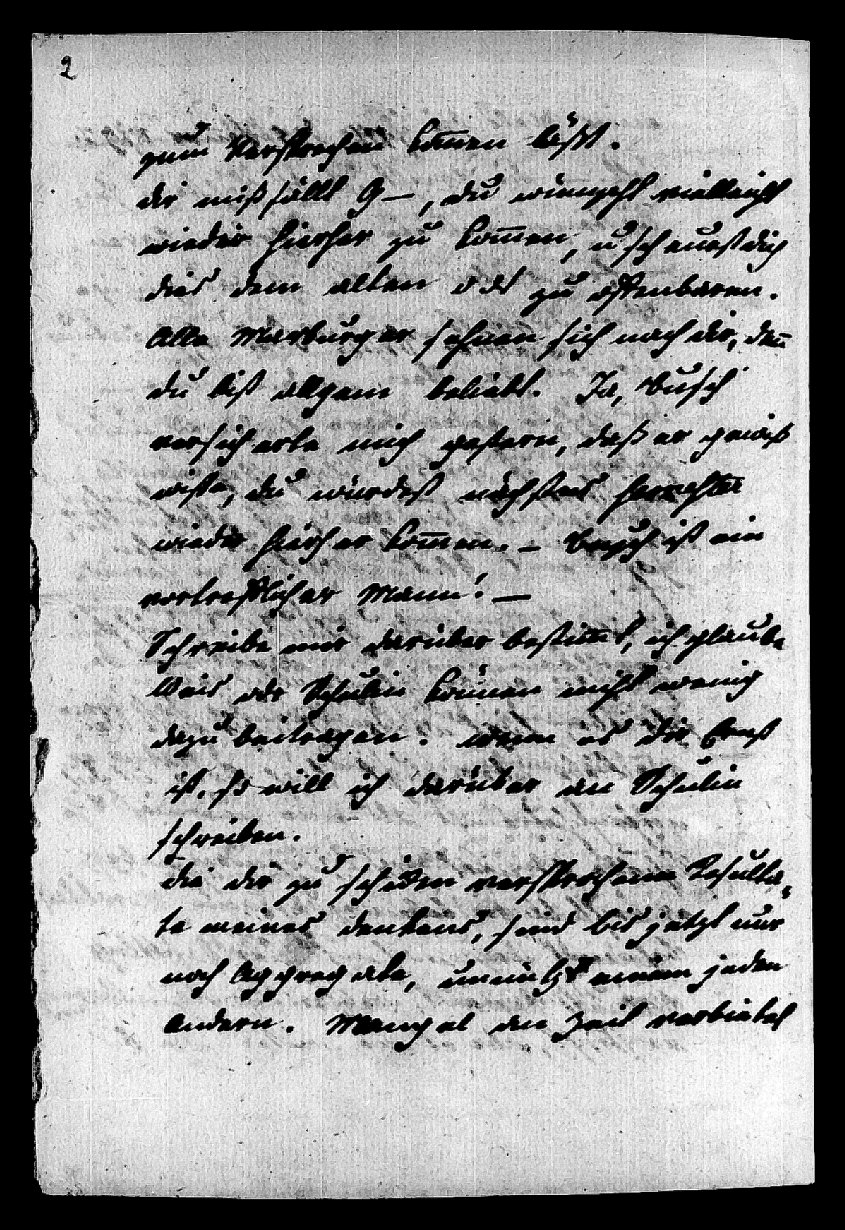 2
zum Versprechen kom̄en läßt.
dir mißfällt G—, du wünscht vielleicht
wieder hierher zu kom̄en, u scheuest dich
dies dem alten zu offenbaren.
Alle Marburger sehnen sich nach dir, den̄
du bist allgem beliebt. Ja, Busch
versicherte mich gestern, daß er gewiß
wiße, du würdest nächstes Semester
wieder hierher kom̄en. – Busch ist ein
vortreflicher Mann! —
Schreibe mir darüber bestim̄t, ich glaube
Weis oder Schulin können nicht wenig
dazu beitragen. wenn es dir Ernst
ist, so will ich darüber an Schulin
schreiben.
die dir zu schicken versprochene Resulta-
te meines denkens, sind bis jetzt nur
noch Aggregate, unnütz einem jeden
andern. Mangel an Zeit verbietet